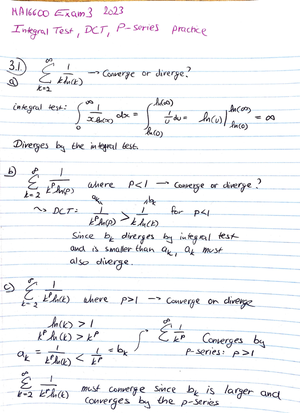 MA16600 Exam 3 2023
Integral Test, DCT, P-series practice
3.1
a) ∞ Σ k=2 1/(k ln(k)) → Converge or diverge?
integral test: ∫₀^∞ 1/(x ln(x)) dx = ∫_{ln(0)}^{ln(∞)} 1/u du = ln(u) |_{ln(0)}^{ln(∞)} = ∞
Diverges by the integral test.
b) ∞ Σ k=2 1/(k^p ln(p)) where P<1 → Converge or diverge?
a_k b_k
~> DCT: 1/(k^p ln(k)) > 1/(k ln(k)) for p<1
Since b_k diverges by integral test
and is smaller than a_k, a_k must
also diverge.
c) ∞ Σ k=2 1/(k^p ln(k)) where p>1 → converge or diverge
ln(k) > 1
k^p ln(k) > k^p
a_k = 1/(k^p ln(k)) < 1/k^p = b_k
∞ Σ 1/k^p Converges by
p-series: p>1
∞ Σ k=2 1/(k^p ln(k)) must converge since b_k is larger and
converges by the p-series